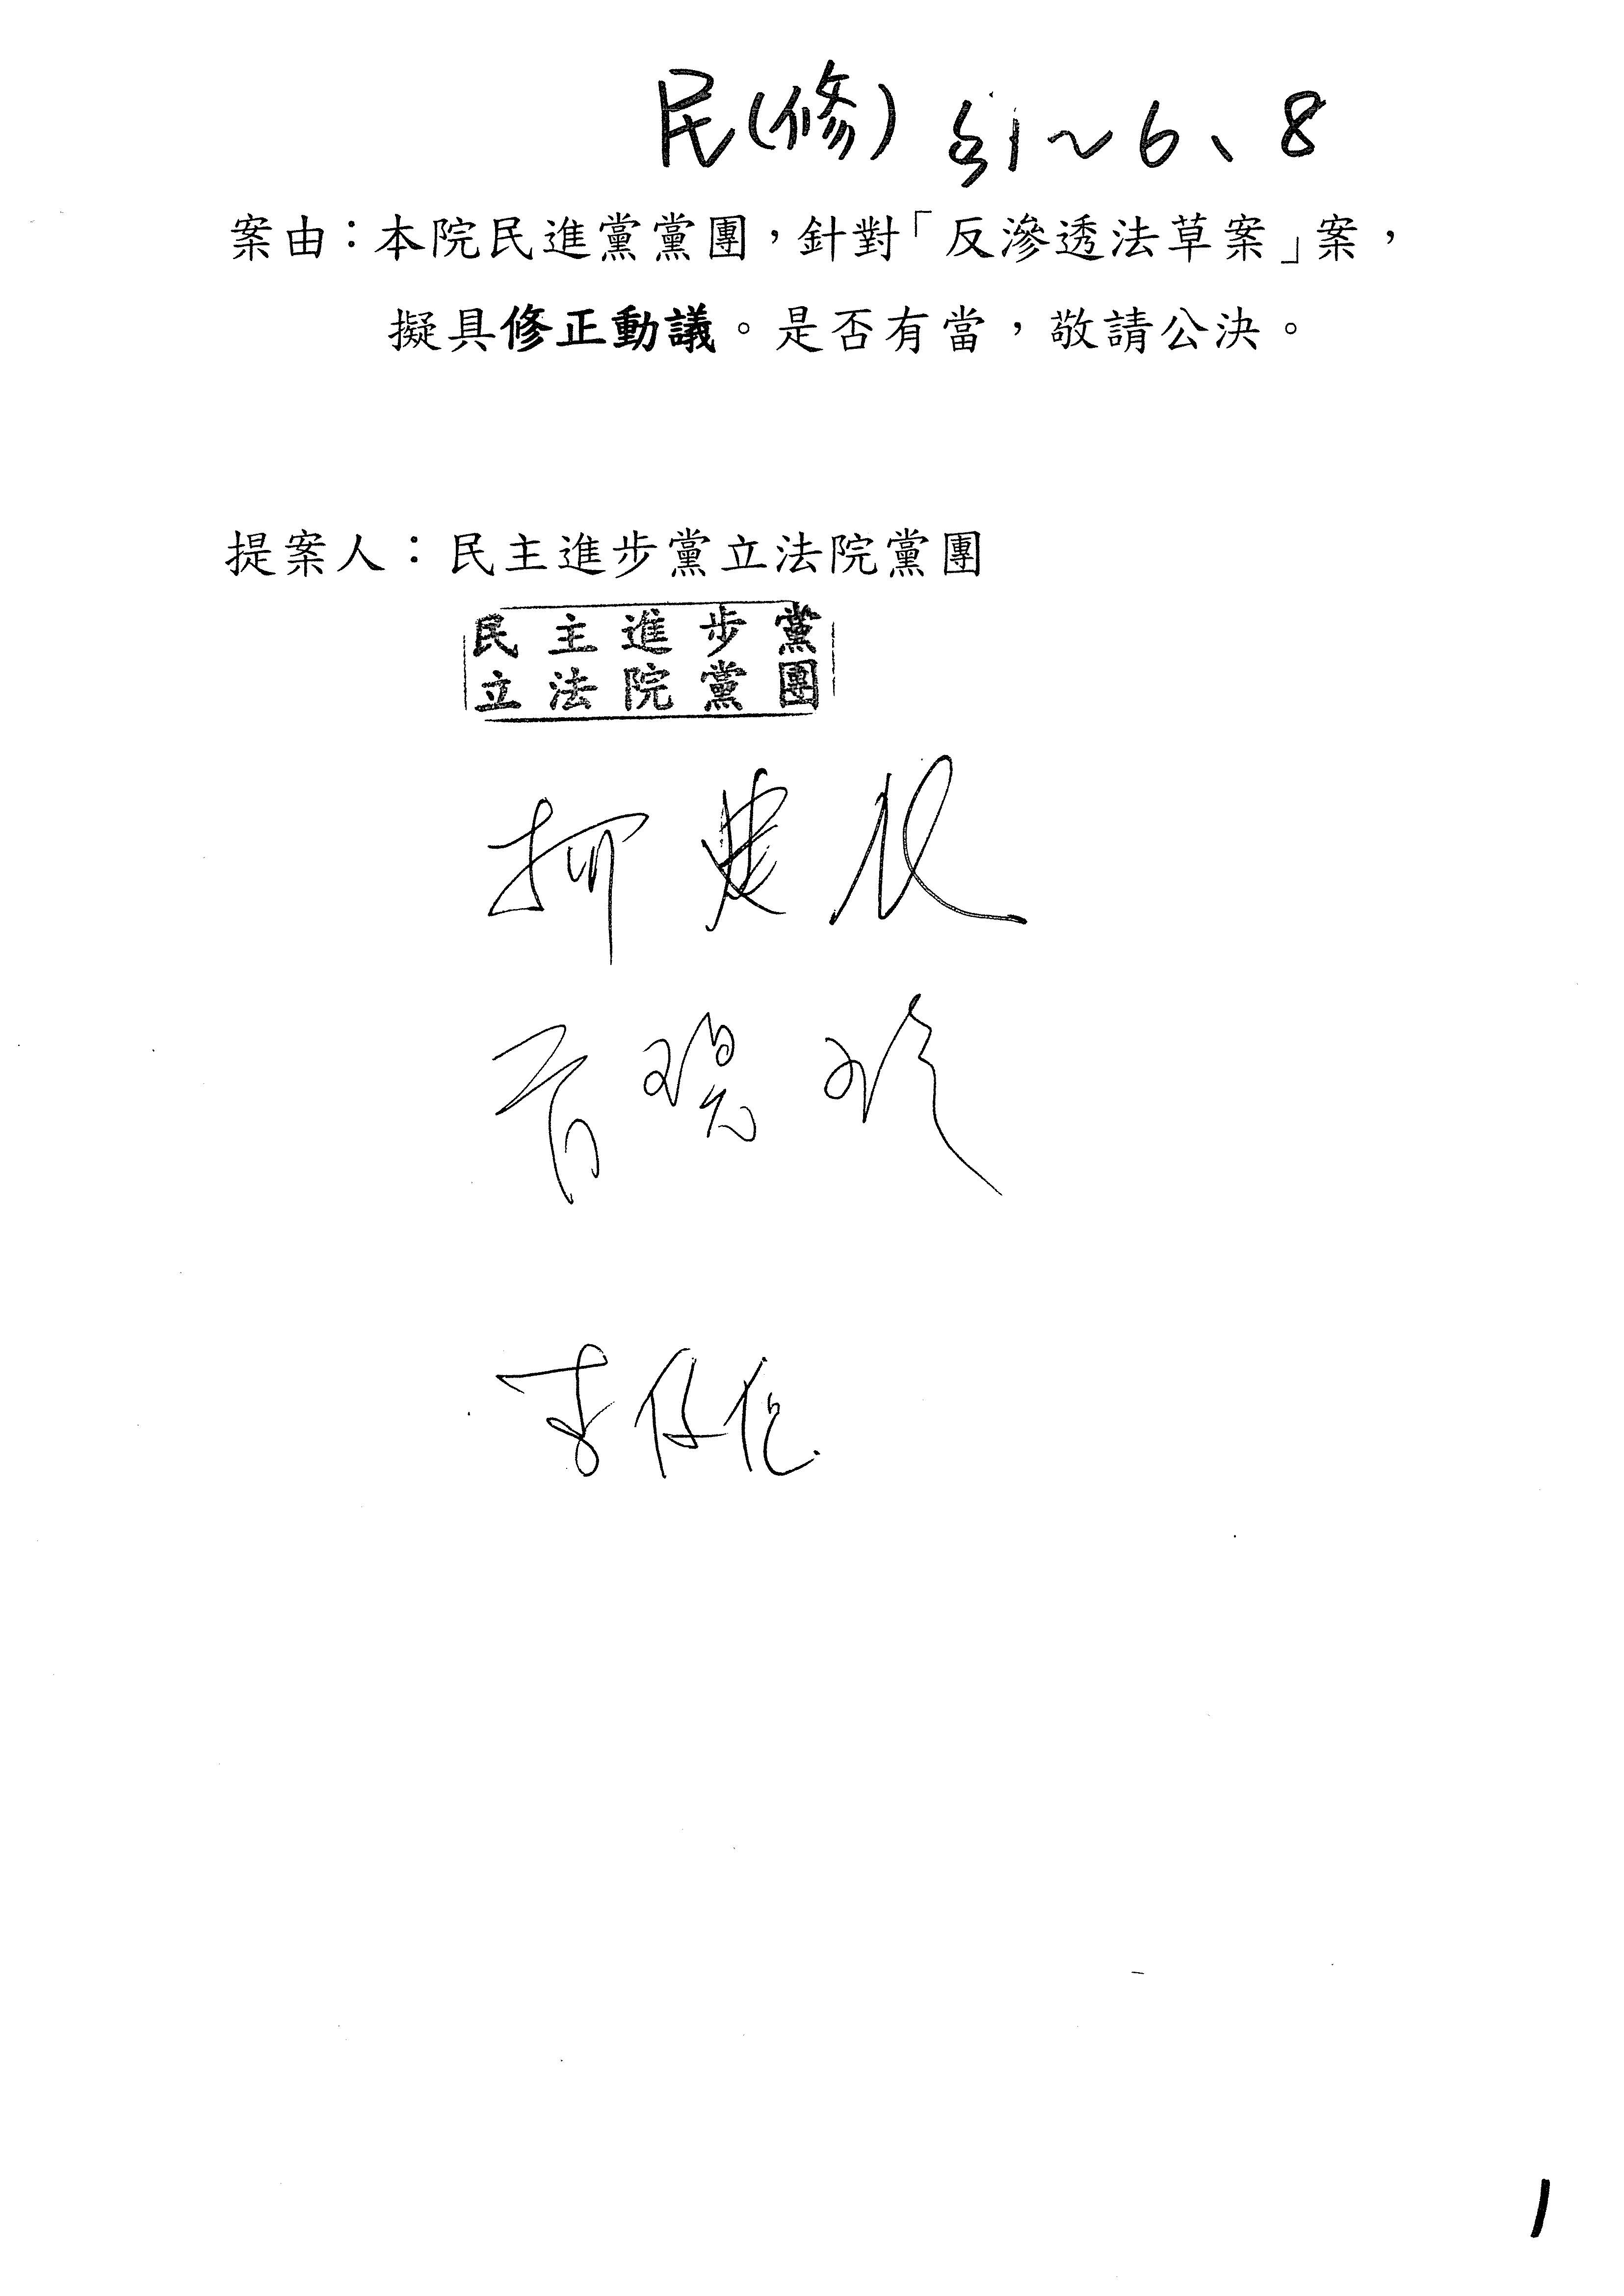 民(修) §1~6、8
案由：本院民進黨黨團，針對「反滲透法草案」案，
擬具修正動議。是否有當，敬請公決。
提案人：民主進步黨立法院黨團
民主進步黨
立法院黨團
柯建銘
管碧玲
李俊俋
1